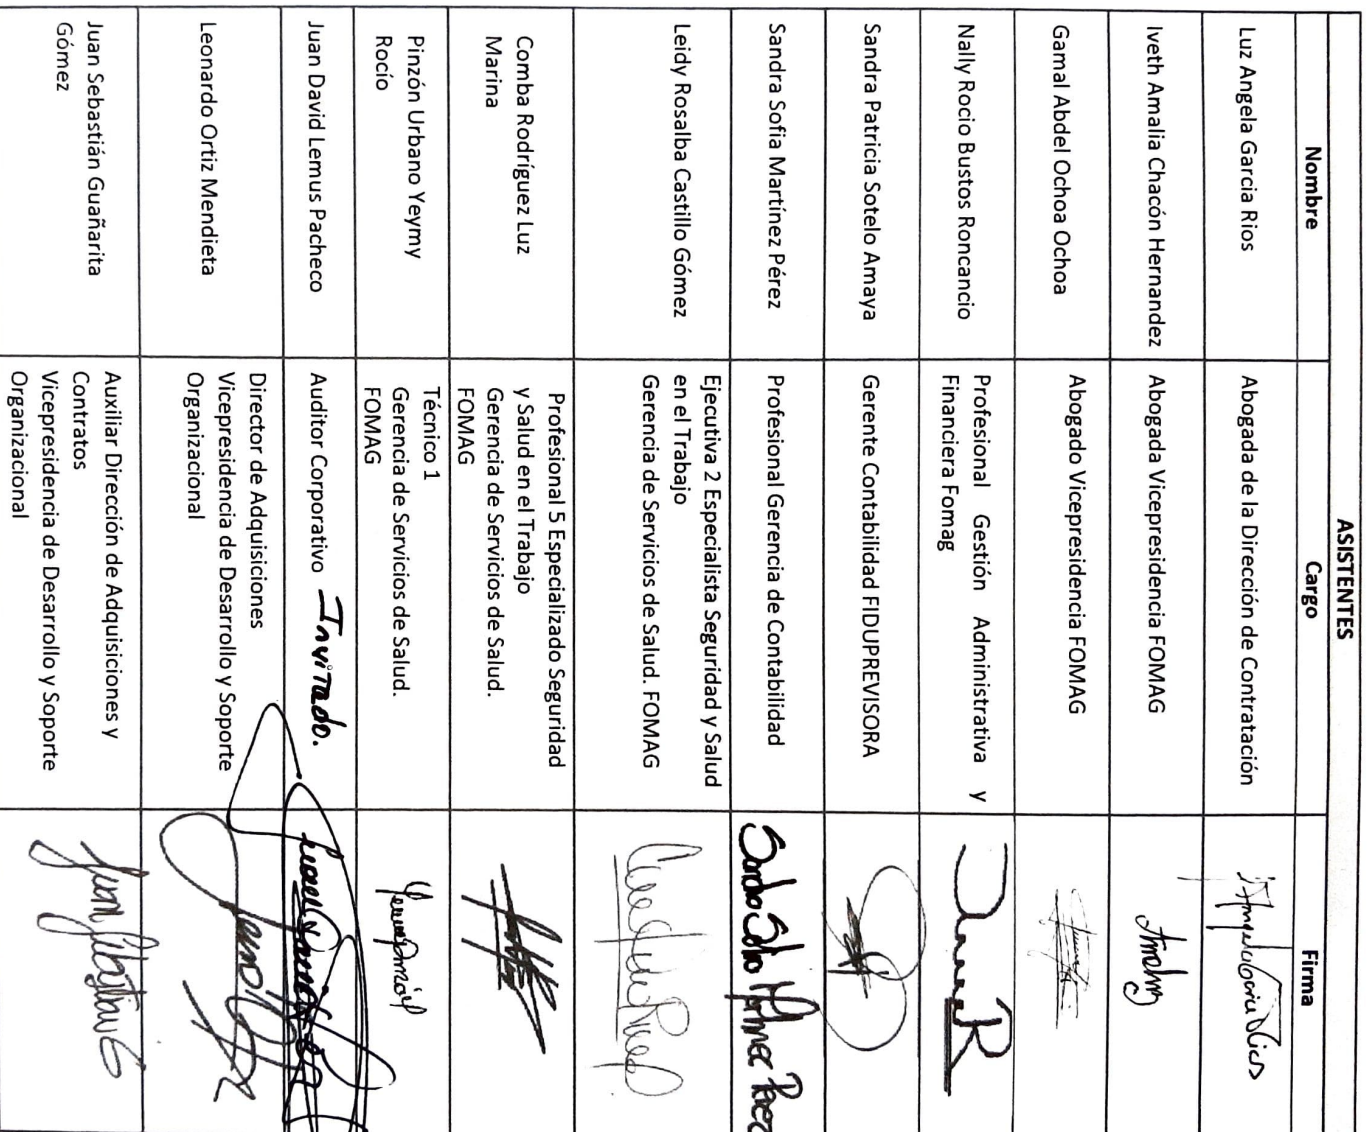 ASISTENTES
Nombre Cargo Firma
Luz Angela Garcia Rios Abogada de la Dirección de Contratación
Iveth Amalia Chacón Hernandez Abogada Vicepresidencia FOMAG
Gamal Abdel Ochoa Ochoa Abogado Vicepresidencia FOMAG
Nally Rocio Bustos Roncancio Profesional Gestión Administrativa y
Financiera Fomag
Sandra Patricia Sotelo Amaya Gerente Contabilidad FIDUPREVISORA
Sandra Sofia Martínez Pérez Profesional Gerencia de Contabilidad
Leidy Rosalba Castillo Gómez
Ejecutiva 2 Especialista Seguridad y Salud
en el Trabajo
Gerencia de Servicios de Salud. FOMAG
Comba Rodríguez Luz
Marina
Profesional 5 Especializado Seguridad
y Salud en el Trabajo
Gerencia de Servicios de Salud.
FOMAG
Pinzón Urbano Yeymy
Rocío
Técnico 1
Gerencia de Servicios de Salud.
FOMAG
Juan David Lemus Pacheco Auditor Corporativo Invitado.
Leonardo Ortiz Mendieta
Director de Adquisiciones
Vicepresidencia de Desarrollo y Soporte
Organizacional
Juan Sebastián Guañarita
Gómez
Auxiliar Dirección de Adquisiciones y
Contratos
Vicepresidencia de Desarrollo y Soporte
Organizacional